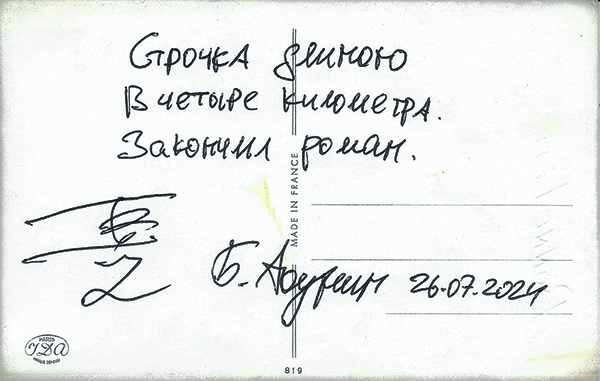 Строчка длиною
В четыре километра.
Закончил роман.
MADE IN FRANCE
Б. Акунин 26.07.2021
PARIS
JDA
819